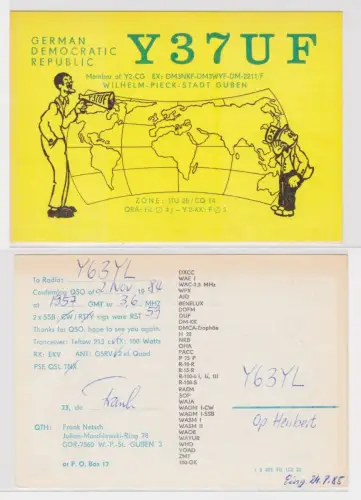 GERMAN
DEMOCRATIC
REPUBLIC
Y37UF
Member of Y2-CG EX: DM3NKF-DM3WYF-DM-2211/F
WILHELM-PIECK-STADT GUBEN
ZONE: ITU 28 / CQ 14
To Radio: Y63YL
Confirming QSO of 2. Nov 19 84
at 1957 GMT for 3,6 MHZ
2 x SSB sigs were RST 59
Thanks for QSO, hope to see you again.
Transceiver: Teltow 215 150 Watts
RX: EKV ANT: G5RV el. Quad
PSE QSL TNX
73, de Frank
QTH: Frank Netsch
Julian-Marchlewski-Ring 78
DDR-7560 W.-P.-St. GUBEN 2
or P. O. Box 17
DXCC
WAE I
WAC-3,5 MHz
WPX
AIO
BENELUX
DDFM
DUF
DM-KK
DMCA-Trophäe
H 20
HEB
OHA
PACC
P-75-P
R-10-R
R-15-R
R-150-S
RAEM
SOP
WAJA
WAOM I-CW
WASM I-SSB
WASM I
WASM II
WAOE
WAYUR
WHO
YOAD
ZMT
100-OE
Y63YL
Op Heribert
Eing. 24.9.85